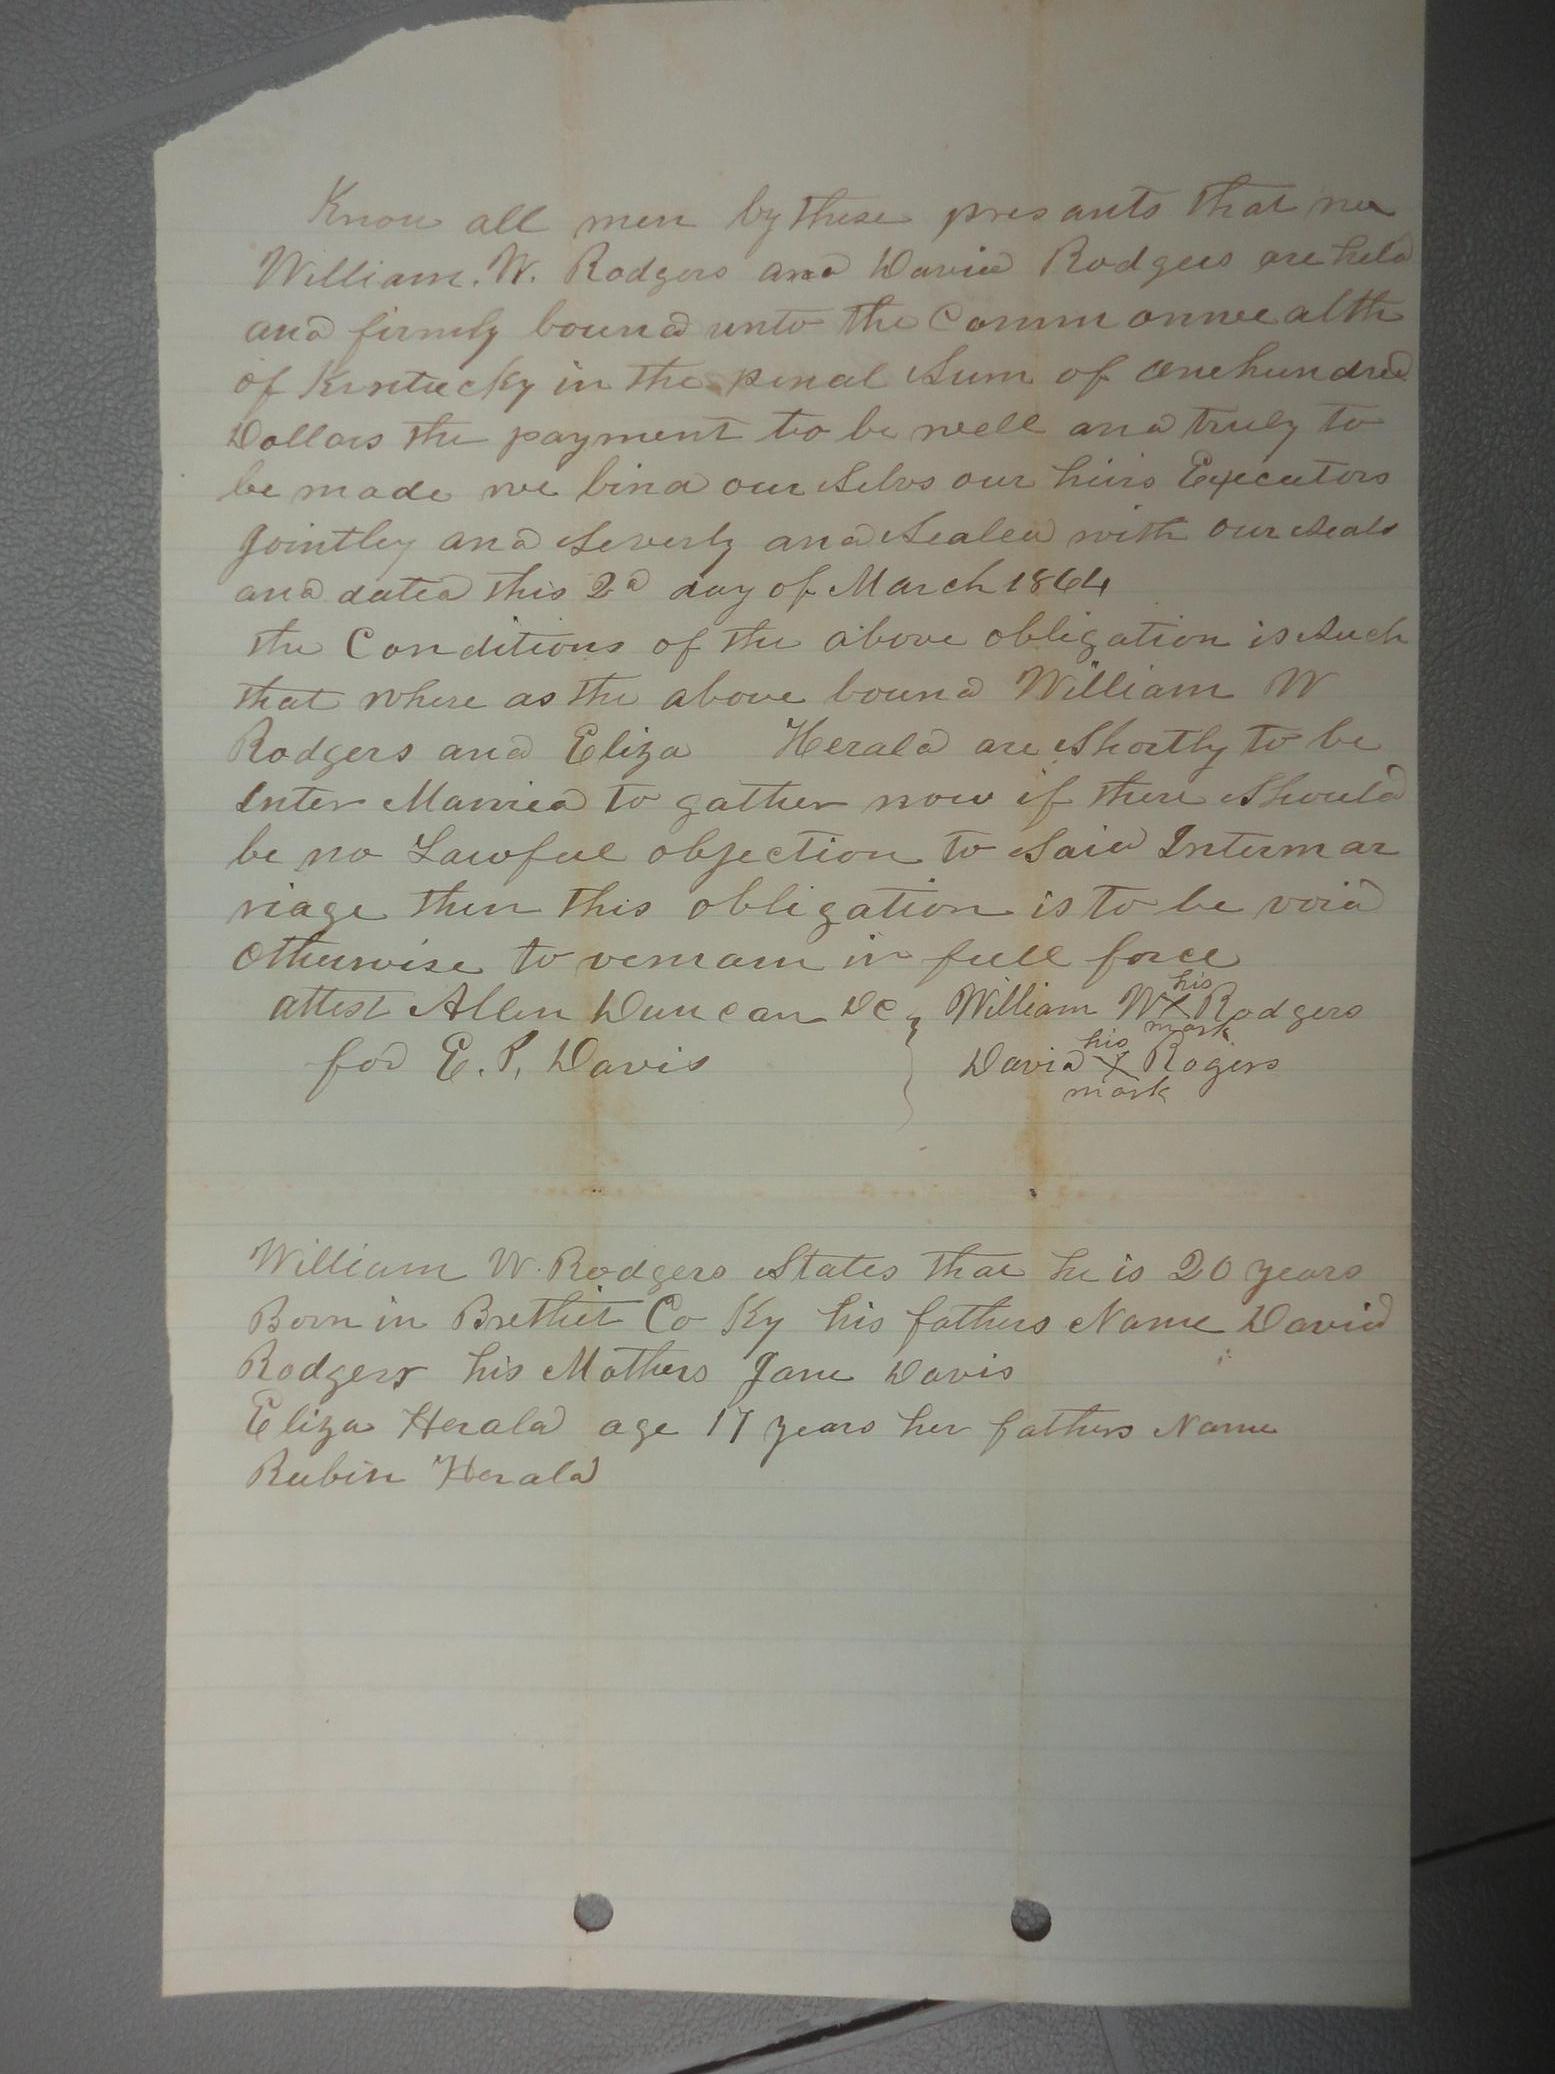 Know all men by these presants that we
William. W. Rodgers and David Rodgers are held
and firmly bound unto the Commonwealth
of Kentucky in the penal Sum of Onehundred
Dollars the payment to be well and truly to
be made we bind our Selvs our heirs Executors
Jointley and Severly and Sealed with our Seals
and dated this 2d day of March 1864
the Conditions of the above obligation is Such
that where as the above bound William W
Rodgers and Eliza Herald are Shortly to be
Inter Married to gather now if there Should
be no Lawful objection to Said Intermar
riage then this obligation is to be void
Otherwise to remain in full force
attest Allen Duncan DC } William W his X mark Rodgers
for E. P. Davis David his X mark Rogers
William W. Rodgers States that he is 20 years
Born in Brethit Co Ky his fathers Name David
Rodgers his Mothers Jane Davis
Eliza Herald age 17 years her fathers Name
Rubin Herald